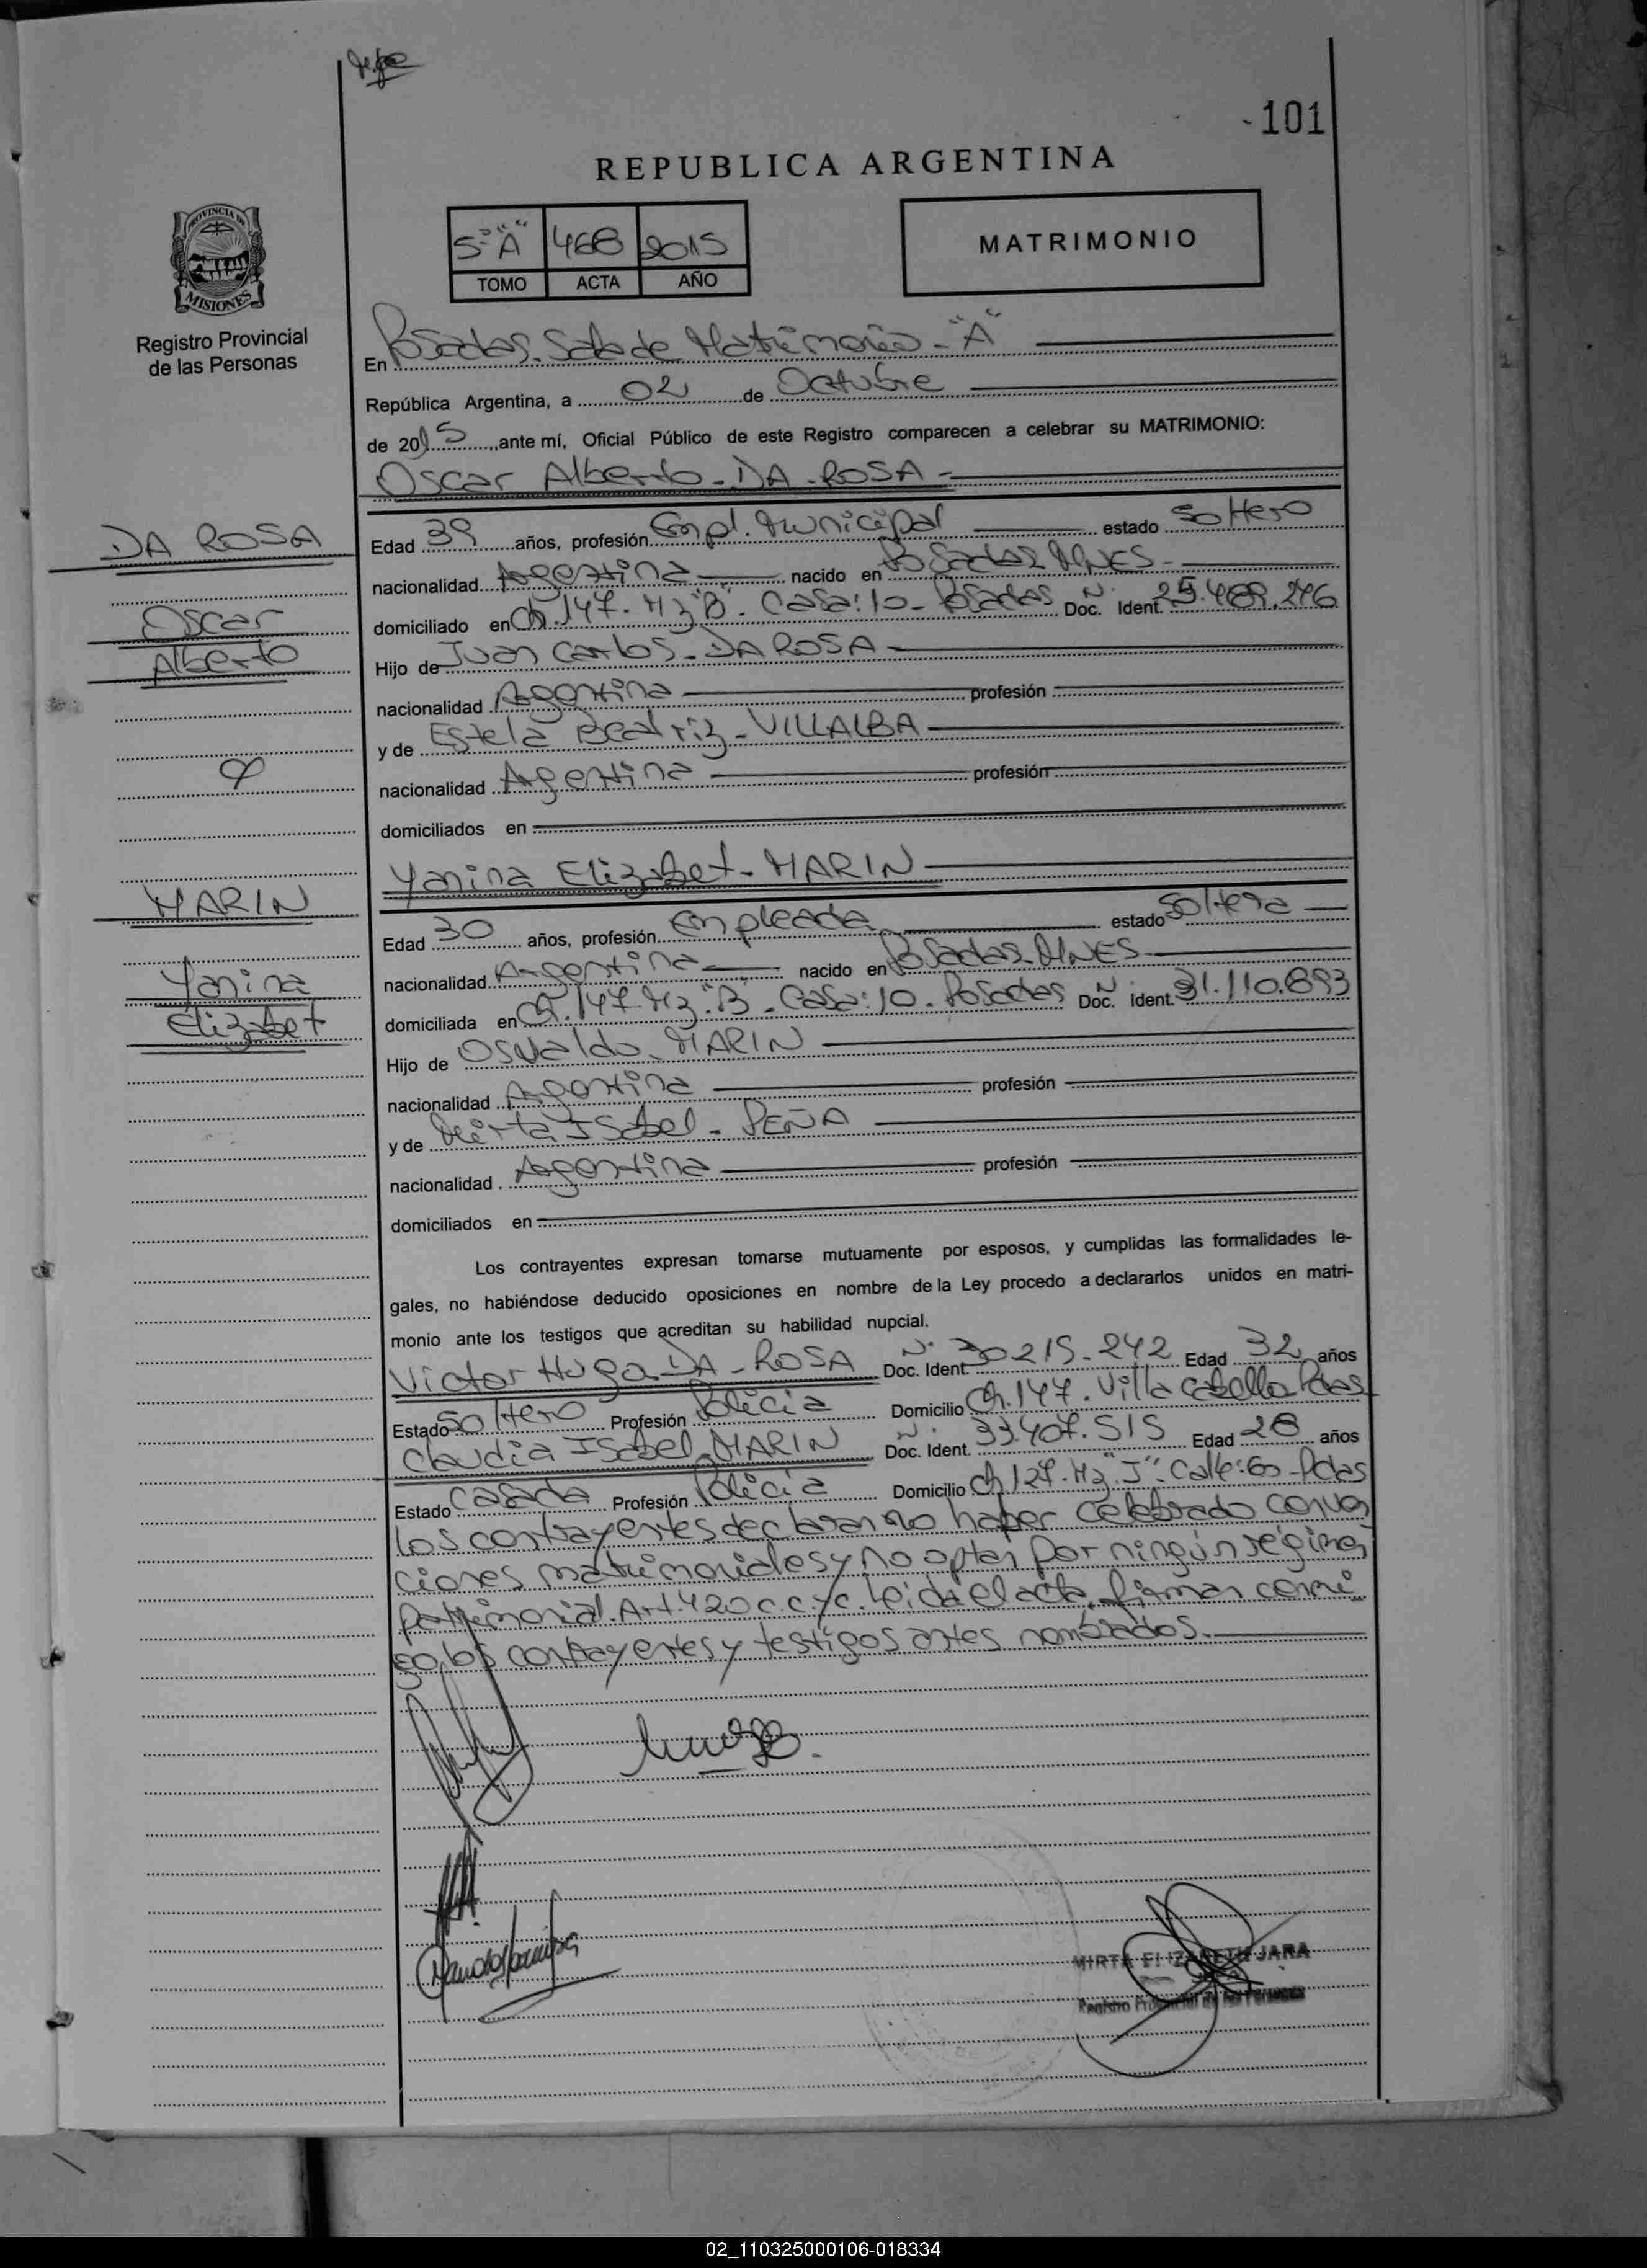 -101
REPUBLICA ARGENTINA
5º "A" 468 2015
TOMO ACTA AÑO
MATRIMONIO
PROVINCIA DE
MISIONES
Registro Provincial
de las Personas
En Posadas. Sala de Matrimonio - "A"
República Argentina, a 02 de Octubre
de 2015, ante mí, Oficial Público de este Registro comparecen a celebrar su MATRIMONIO:
Oscar Alberto - DA ROSA -
DA ROSA
Oscar
Alberto
Edad 39 años, profesión Empl. Municipal estado Soltero
nacionalidad Argentina nacido en Posadas MNES -
domiciliado en Ch. 147. Mz "B". Casa: 10 - Posadas Doc. Ident. Nº 25.489.276
Hijo de Juan Carlos - DA ROSA -
nacionalidad Argentina profesión
y de Estela Beatriz - VILLALBA
nacionalidad Argentina profesión
domiciliados en
Yanina Elizabet - MARIN
MARIN
Yanina
Elizabet
Edad 30 años, profesión Empleada estado Soltera
nacionalidad Argentina nacido en Posadas - MNES
domiciliada en Ch. 147. Mz. "B" - Casa: 10 - Posadas Doc. Ident. Nº 31.110.893
Hijo de Osvaldo - MARIN
nacionalidad Argentina profesión
y de Mirta Isabel - PEÑA
nacionalidad Argentina profesión
domiciliados en
Los contrayentes expresan tomarse mutuamente por esposos, y cumplidas las formalidades le-
gales, no habiéndose deducido oposiciones en nombre de la Ley procedo a declararlos unidos en matri-
monio ante los testigos que acreditan su habilidad nupcial.
Victor Hugo - DA - ROSA Doc. Ident. Nº 30.215.242 Edad 32 años
Estado Soltero Profesión Policia Domicilio Ch. 147. Villa Cabello Pdas
Claudia Isabel MARIN Doc. Ident. Nº 33.407.515 Edad 28 años
Estado Casada Profesión Policia Domicilio Ch 127. Mz "J". Calle: 60 - Pdas
Los contrayentes declaran no haber celebrado conven
ciones matrimoniales y no optan por ningún régimen
patrimonial. Art. 420 c.c.yc. Leida el acta, firman conmi
go los contrayentes y testigos antes nombrados.
MIRTA ELIZABETH JARA
Registro Provincial de las Personas
02_110325000106-018334